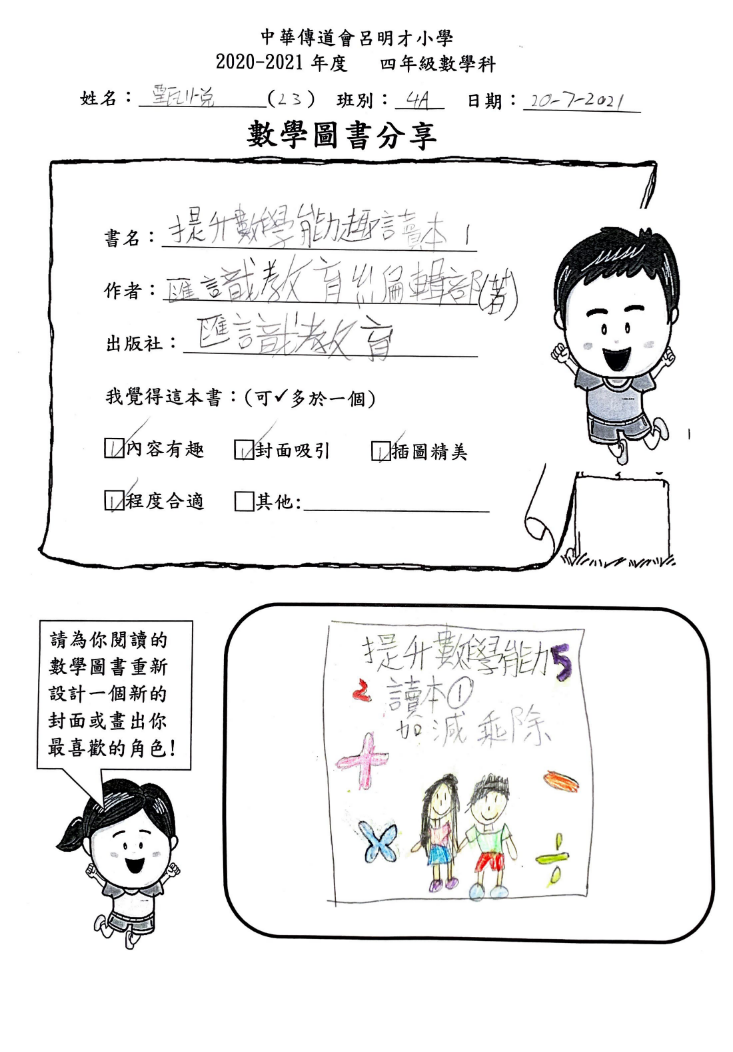 中華傳道會呂明才小學
2020-2021年度 四年級數學科
姓名：甄悅 (23) 班別：4A 日期：20-7-2021
數學圖書分享
書名：提升數學能力趣讀本 1
作者：匯識教育編輯部(著)
出版社：匯識教育
我覺得這本書：(可✓多於一個)
✓內容有趣 ✓封面吸引 ✓插圖精美
✓程度合適 □其他:
請為你閱讀的
數學圖書重新
設計一個新的
封面或畫出你
最喜歡的角色!
提升數學能力 5
2 讀本①
加減乘除
+
-
×
÷